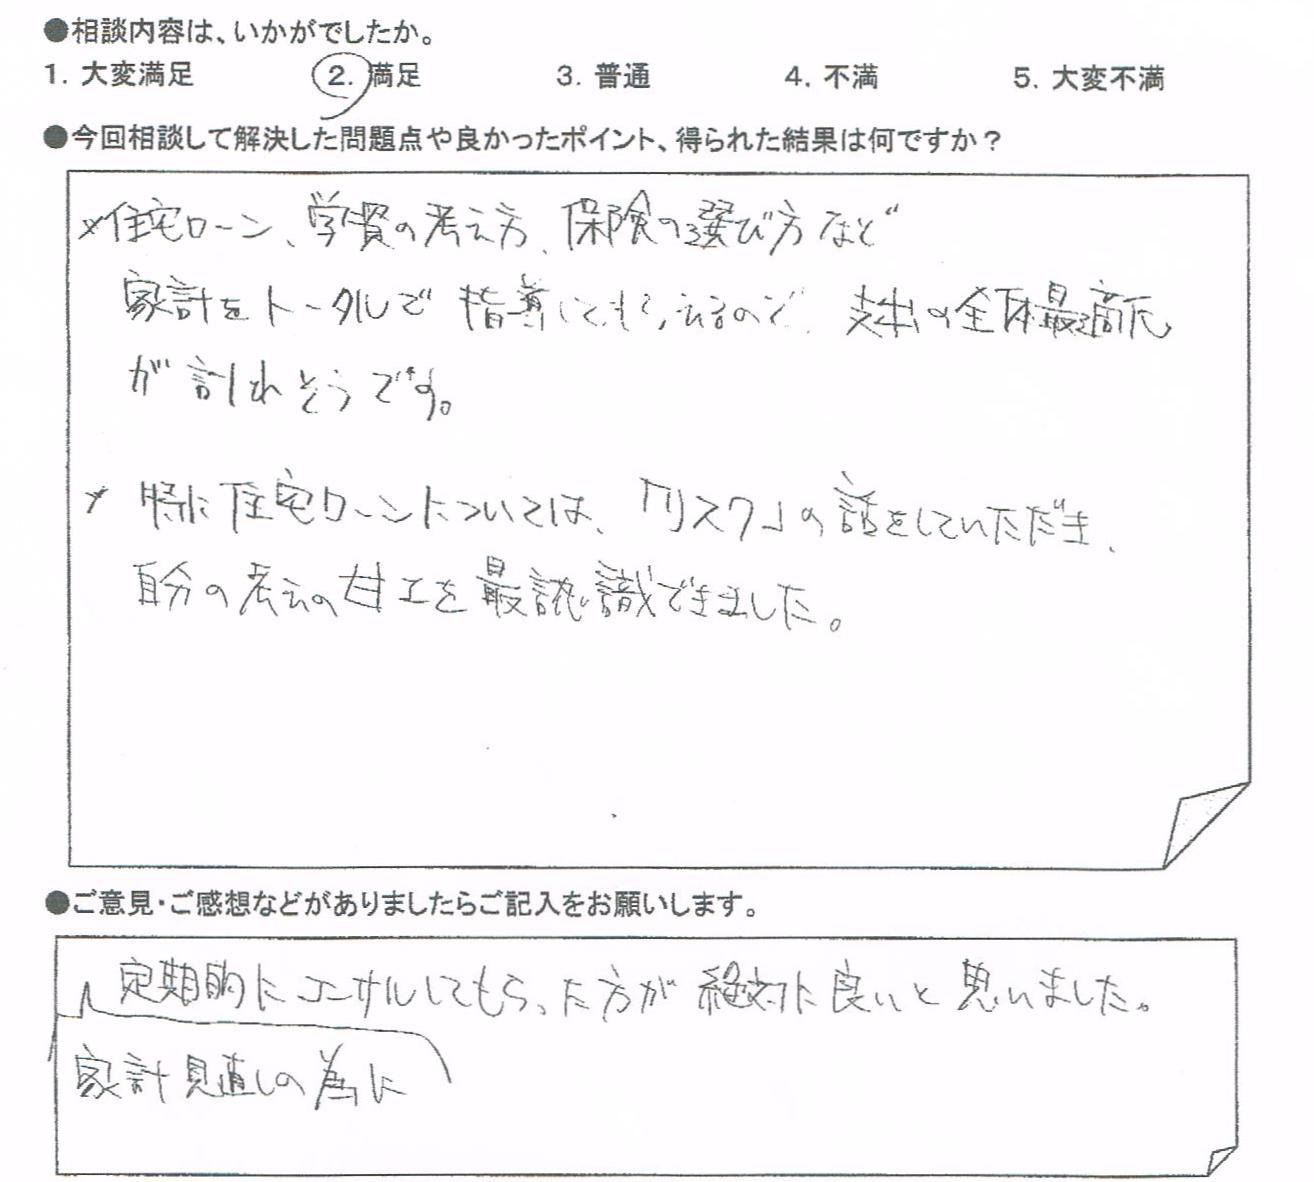 ●相談内容は、いかがでしたか。
1. 大変満足 2. 満足 3. 普通 4. 不満 5. 大変不満
●今回相談して解決した問題点や良かったポイント、得られた結果は何ですか？
*住宅ローン、学資の考え方、保険の選び方など
家計をトータルで指導してもらえるので、支出の全体最適化
が計れそうです。
* 特に住宅ローンについては、「リスク」の話をしていただき、
自分の考えの甘エを最認識できました。
●ご意見・ご感想などがありましたらご記入をお願いします。
定期的にコンサルしてもらった方が絶対に良いと思いました。
家計見直しの為に